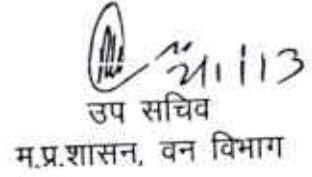 21/1/13
उप सचिव
म.प्र.शासन, वन विभाग